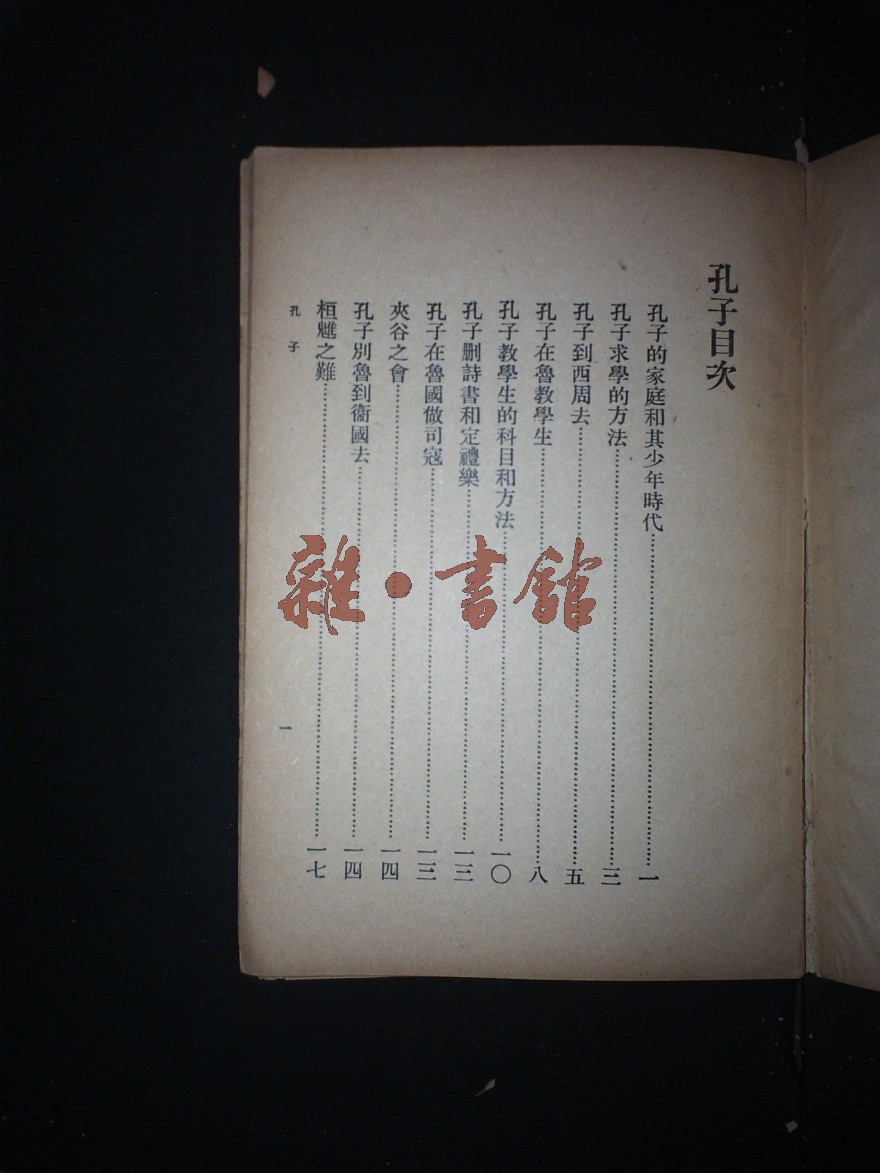 孔子目次
孔子的家庭和其少年時代……一
孔子求學的方法……三
孔子到西周去……五
孔子在魯教學生……八
孔子教學生的科目和方法……一〇
孔子刪詩書和定禮樂……一三
孔子在魯國做司寇……一三
夾谷之會……一四
孔子別魯到衞國去……一四
桓魋之難……一七
孔子
一
雜·書館